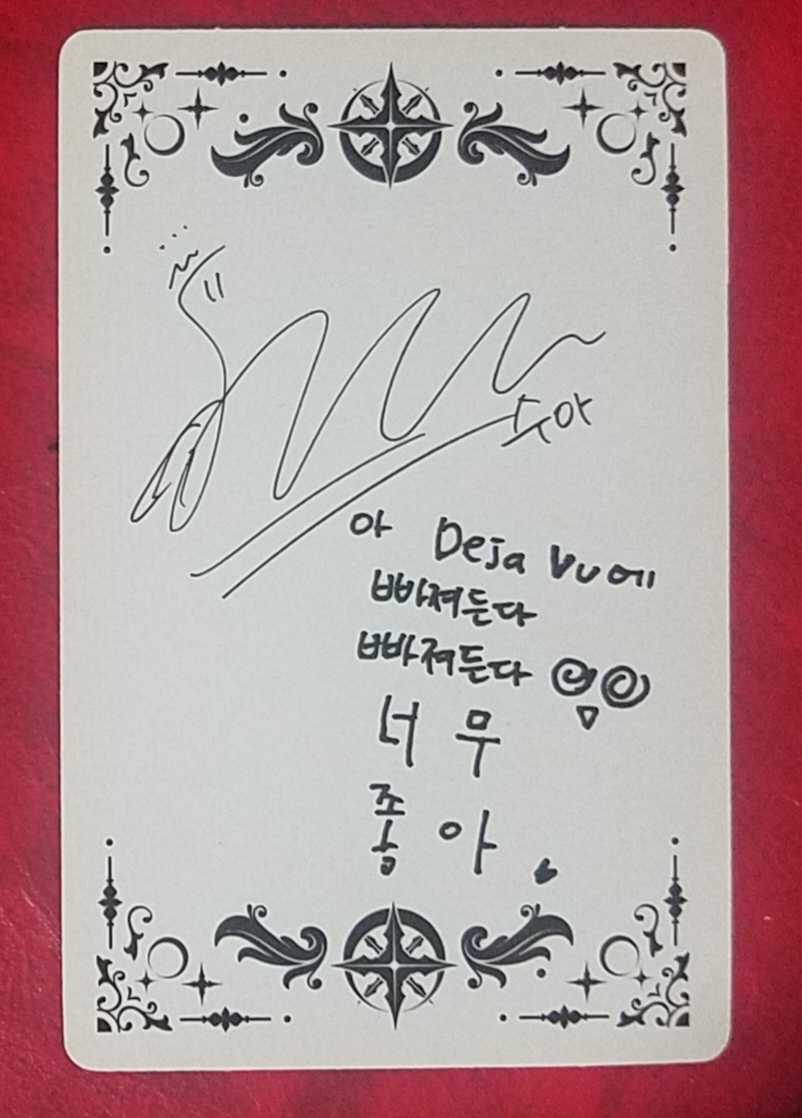 아 Deja Vu에
빠져든다
빠져든다
너무
좋아